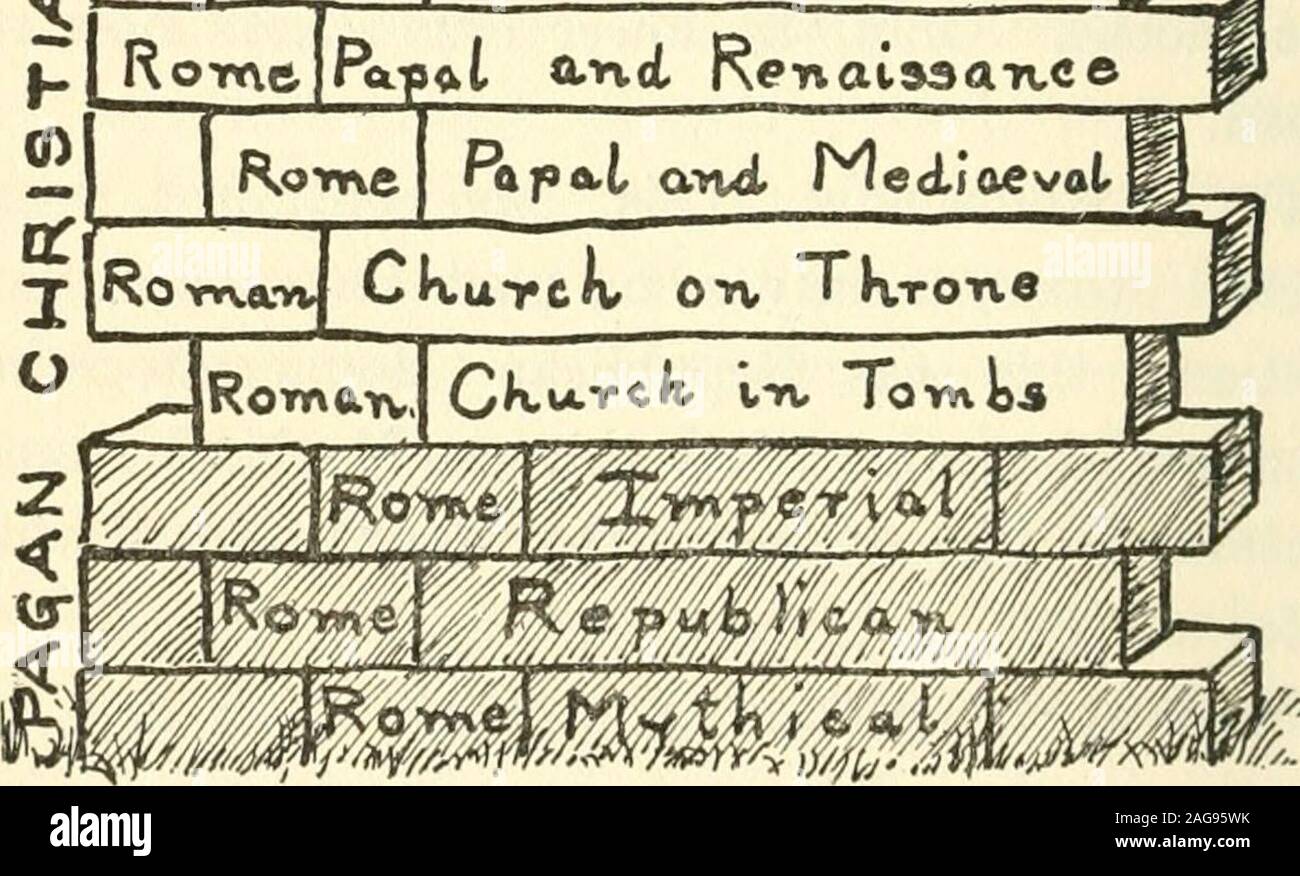 Rome Papal and Renaissance
Rome Papal and Mediaeval
Roman Church on Throne
Roman Church in Tombs
Rome Imperial
Rome Republican
Rome Mythical
PAGAN CHRISTIA
alamy
Image ID: 2AG95WK
www.alamy.com